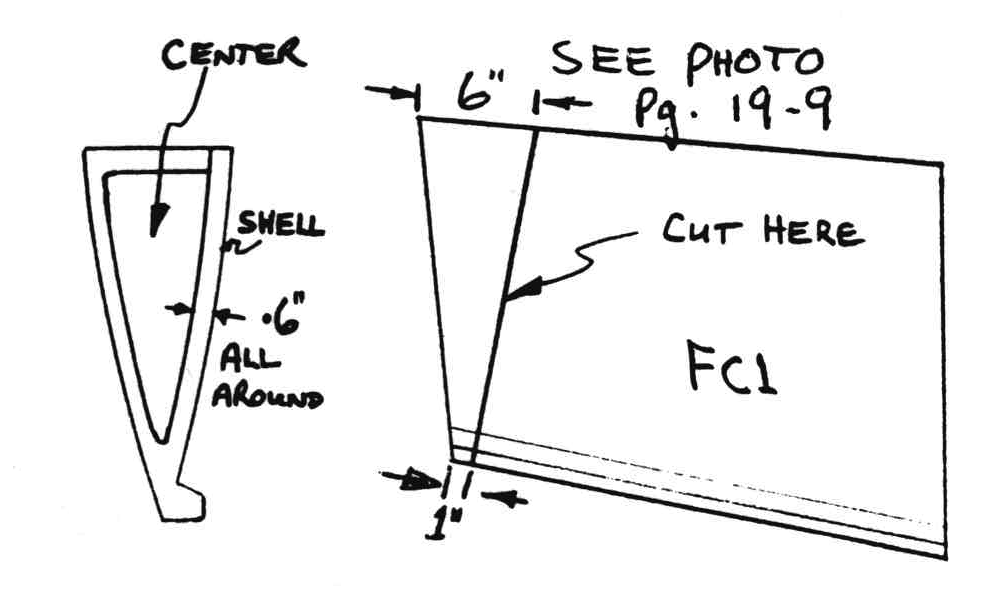 CENTER
SHELL
.6"
ALL
AROUND
6"
SEE PHOTO
Pg. 19-9
CUT HERE
FC1
1"